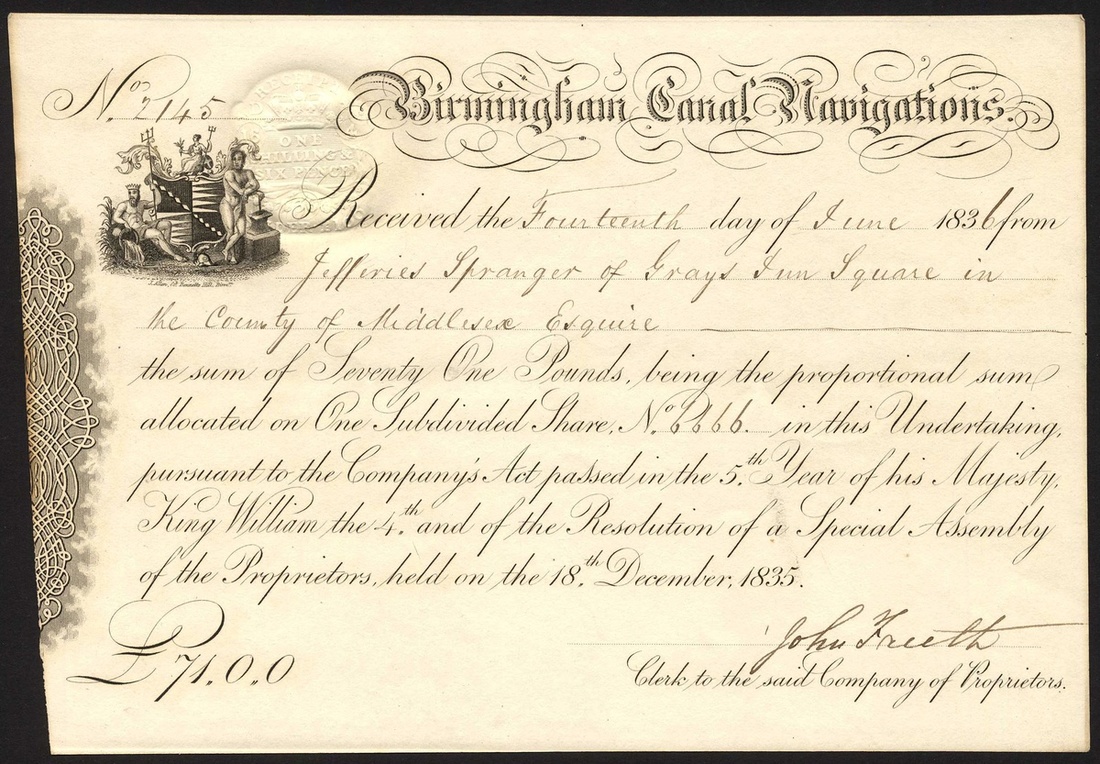 No. 2145
Birmingham Canal Navigations.
ONE
SHILLING &
SIX PENCE
Received the Fourteenth day of June 1836 from
Jefferies Spranger of Grays Inn Square in
the County of Middlesex Esquire
the sum of Seventy One Pounds, being the proportional sum
allocated on One Subdivided Share, No. 6666. in this Undertaking,
pursuant to the Company's Act passed in the 5.th Year of his Majesty,
King William the 4.th and of the Resolution of a Special Assembly
of the Proprietors, held on the 18.th December, 1835.
£71.0.0
John Freeth
Clerk to the said Company of Proprietors.